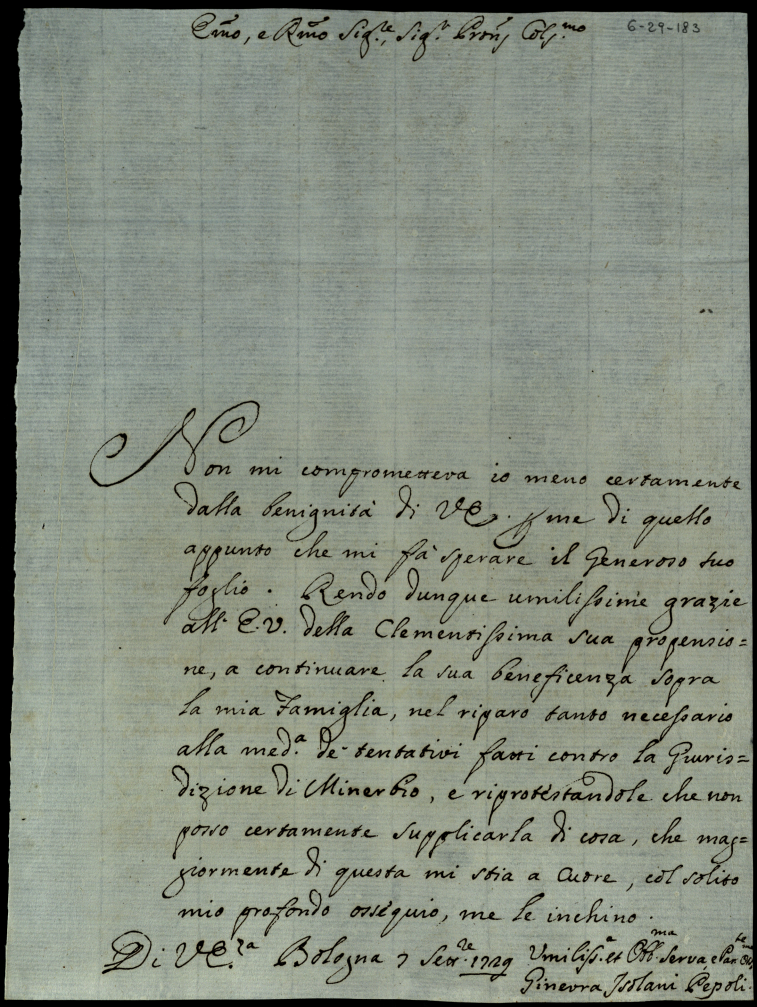 Emo, e Rmo Sig.re, Sig.r Pron Col.mo
6-29-183
Non mi comprometteva io meno certamente
dalla benignità di VE. pme di quello
appunto che mi fà sperare il Generoso suo
foglio. Rendo dunque umilissime grazie
all' E.V. della Clementissima sua propensio=
ne, a continuare la sua beneficenza sopra
la mia Famiglia, nel riparo tanto necessario
alla med.a de' tentativi fatti contro la Giuris=
dizione di Minerbio, e riprotestandole che non
posso certamente supplicarla di cosa, che mag=
giormente di questa mi stia a Cuore, col solito
mio profondo ossequio, me le inchino.
Di VE.za Bologna 7 Sett.re 1729 Umiliss.a et Obb.ma Serva, e
Ginevra Isolani Pepoli.